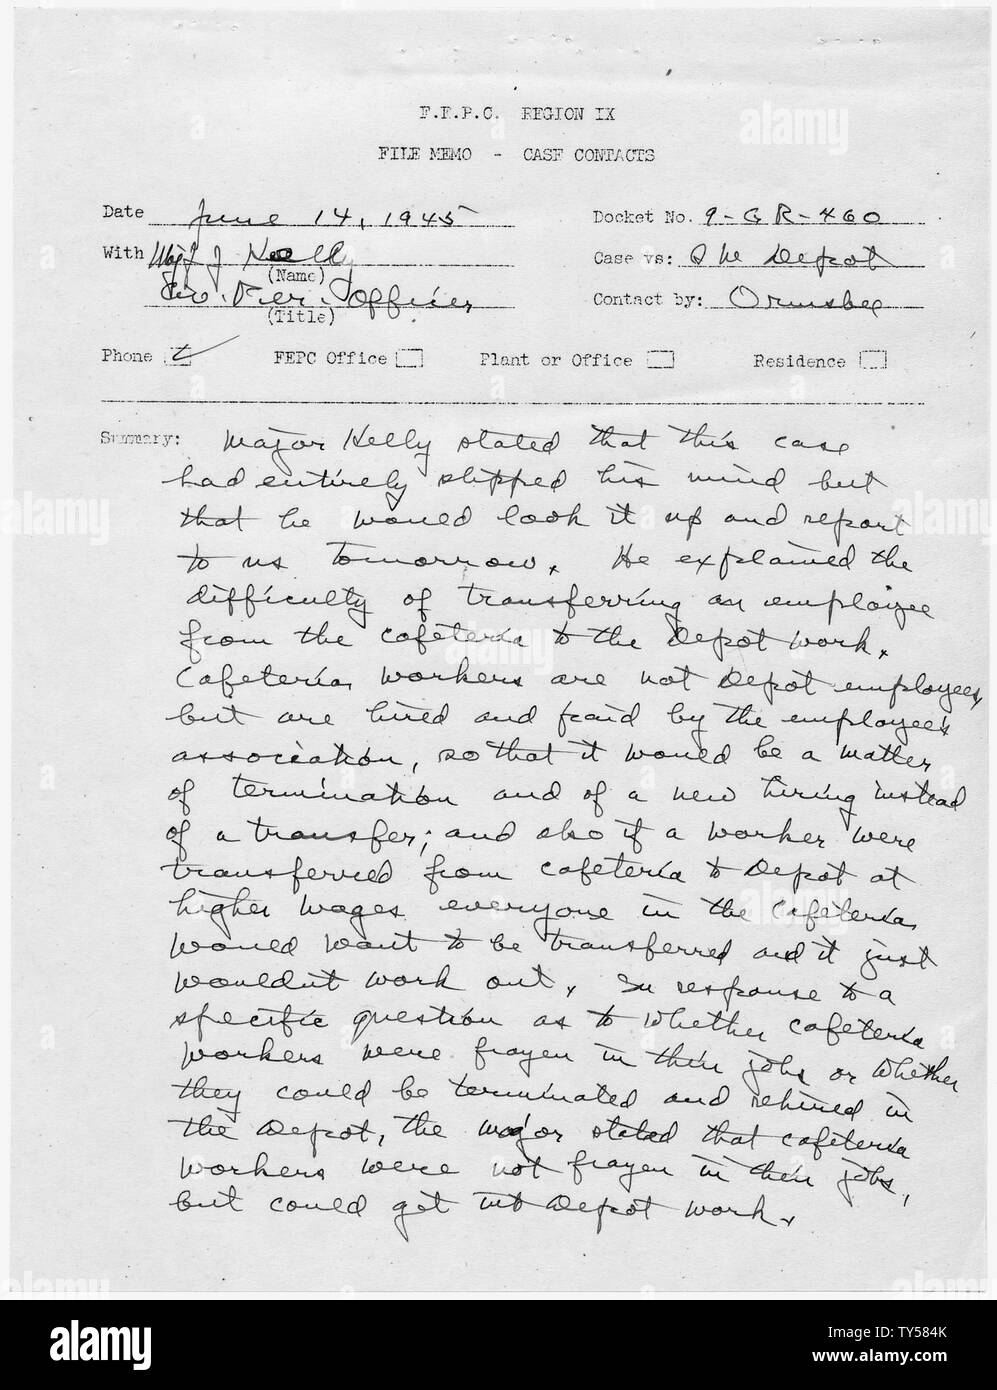 F.E.P.C. REGION IX
FILE MEMO - CASE CONTACTS
Date June 14, 1945
Docket No. 9-GR-460
With Maj J Kelly
Case vs: Q M Depot
(Name)
Civ. Per. Officer
Contact by: Ormsbee
(Title)
Phone FEPC Office Plant or Office Residence
Summary: Major Kelly stated that this case
had entirely slipped his mind but
that he would look it up and report
to us tomorrow. He explained the
difficulty of transferring an employee
from the cafeteria to the Depot work.
Cafeteria workers are not Depot employees,
but are hired and paid by the employee's
association, so that it would be a matter
of termination and of a new hiring instead
of a transfer; and also if a worker were
transferred from cafeteria to Depot at
higher wages everyone in the cafeteria
would want to be transferred and it just
wouldn't work out. In response to a
specific question as to whether cafeteria
workers were frozen in their jobs or whether
they could be terminated and rehired in
the Depot, the major stated that cafeteria
workers were not frozen in their jobs,
but could get into Depot work.
alamy
TY584K
www.alamy.com